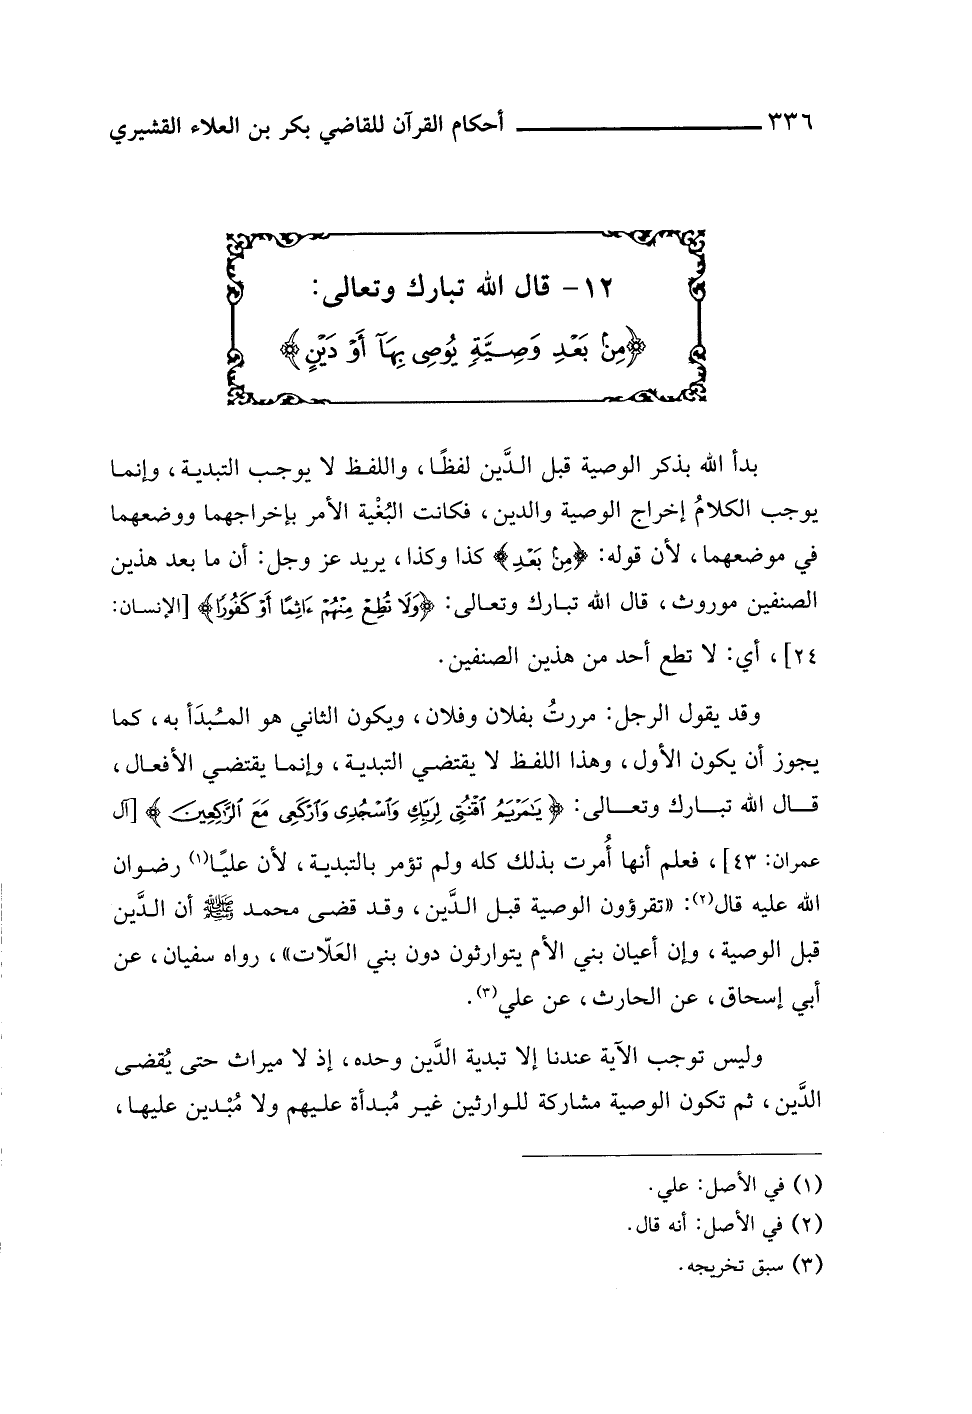 ٣٣٦ أحكام القرآن للقاضي بكر بن العلاء القشيري
١٢- قال الله تبارك وتعالى:
﴿مِنۢ بَعۡدِ وَصِيَّةٖ يُوصِي بِهَآ أَوۡ دَيۡنٍ﴾
بدأ الله بذكر الوصية قبل الدَّين لفظًا، واللفظ لا يوجب التبدية، وإنما
يوجب الكلامُ إخراج الوصية والدين، فكانت البُغْية الأمر بإخراجهما ووضعهما
في موضعهما، لأن قوله: ﴿مِنۢ بَعۡدِ﴾ كذا وكذا، يريد عز وجل: أن ما بعد هذين
الصنفين موروث، قال الله تبارك وتعالى: ﴿وَلَا تُطِعۡ مِنۡهُمۡ ءَاثِمًا أَوۡ كَفُورٗا﴾ [الإنسان:
٢٤]، أي: لا تطع أحد من هذين الصنفين.
وقد يقول الرجل: مررتُ بفلان وفلان، ويكون الثاني هو المـُبدَأ به، كما
يجوز أن يكون الأول، وهذا اللفظ لا يقتضي التبدية، وإنما يقتضي الأفعال،
قال الله تبارك وتعالى: ﴿يَٰمَرۡيَمُ ٱقۡنُتِي لِرَبِّكِ وَٱسۡجُدِي وَٱرۡكَعِي مَعَ ٱلرَّٰكِعِينَ﴾ [آل
عمران: ٤٣]، فعلم أنها أُمرت بذلك كله ولم تؤمر بالتبدية، لأن عليًا(١) رضوان
الله عليه قال(٢): «تقرؤون الوصية قبل الدَّين، وقد قضى محمد ﷺ أن الدَّين
قبل الوصية، وإن أعيان بني الأم يتوارثون دون بني العَلّات»، رواه سفيان، عن
أبي إسحاق، عن الحارث، عن علي(٣).
وليس توجب الآية عندنا إلا تبدية الدَّين وحده، إذ لا ميراث حتى يُقضى
الدَّين، ثم تكون الوصية مشاركة للوارثين غير مُبدأة عليهم ولا مُبْدين عليها،
(١) في الأصل: علي.
(٢) في الأصل: أنه قال.
(٣) سبق تخريجه.